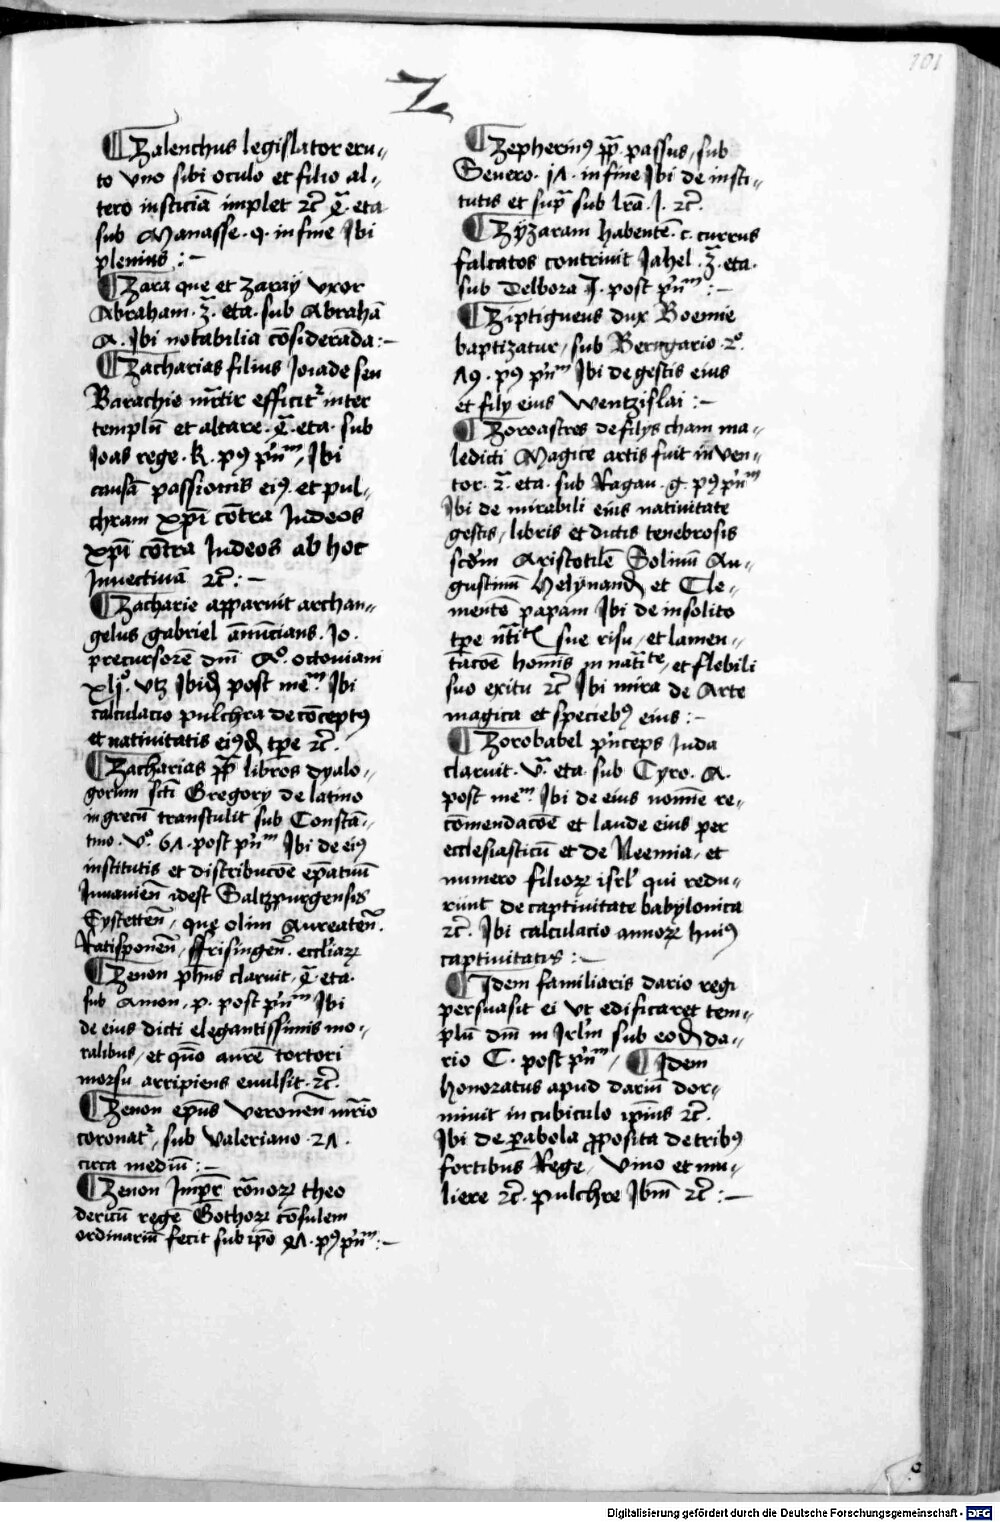 101
Z
¶ Zalenchus legislator eru-
to vno sibi oculo et filio al-
tero iusticiā implet ꝛc̄ q̄. eta
sub Manasse. q. in fine Ibi
plenius :-
¶ Zara que et Zaray vxor
Abraham. z̄. eta. sub Abrahā
A. Ibi notabilia cōsiderāda :-
¶ Zacharias filius Ioiade seu
Barachie mr̄tir efficitr inter
templū et altare. q̄. eta. sub
Ioas rege. k. pꝰ pn̄m, Ibi
causā passionis eiꝰ. et pul-
chram xp̄i cōtra Iudeos
xp̄i cōtra Iudeos ab hoc
Inuectiuā ꝛc̄ :-
¶ Zacharie apparuit archan-
gelus gabriel ānūcians. Io.
precursorē dn̄i Aº. octouiani
xljº. vtz Ibidē post mem̄. Ibi
calculacio pulchra de cōceptꝰ
et natiuitatis eiꝰdē tp̄e ꝛc̄.
¶ Zacharias pp̄ libros dyalo-
gorum sc̄ti Gregory de latino
in grecū transtulit sub Constā-
tino. vº. 61. post pn̄m Ibi de eiꝰ
institutis et distribucōe ep̄atuū
Iuuauien̄ idest Saltzpurgensis
Eystetten̄, quę olim Aureaten̄.
Ratisponen̄, ffrisingen̄. eccl'iaꝝ
¶ Zenon ph̄us claruit, q̄. eta.
sub Amon, p. post pn̄m Ibi
de eius dicti elegantissimis mo-
ralibus, et quō aurē tortori
morsu arripiens euulsit. ꝛc̄.
¶ Zenon ep̄us Veronen̄ mr̄io
coronatr, sub Valeriano. 21.
circa mediū :-
¶ Zenon Imp̄r rōnoꝝ theo
dericū regē Gothoꝝ cōsulem
ordinariū fecit sub ip̄o 91. pꝰ pn̄m :-
¶ Zepherinꝰ pp̄ passus, sub
Seuero. j1. in fine Ibi de insti-
tutis et supͣ sub lr̄a. J. ꝛc̄.
¶ Zyzaram habentē. c. currus
falcatos contriuit Jahel. z̄. eta.
sub Delbora J. post pn̄m :-
¶ Ziptigneus dux Boemie
baptizatur, sub Berngario. 2º.
19. pꝰ pn̄m Ibi de gestis eius
et fily eius Wentzislai :-
¶ Zoroastres de filys cham ma-
ledicti Magice artis fuit inven-
tor. 2̄. eta. sub Ragau. g. pꝰ pn̄m
Ibi de mirabili eius natiuitate
gestis, libris et dictis tenebrosis
scdm Aristotilē Solinū Au-
gustinū Helynandū et Cle-
mentē papam Ibi de insolito
tp̄e sue risu, et lamen-
tacōe homīs in natīte, et flebili
suo exitu ꝛc̄ Ibi mira de Arte
magica et speciebꝰ eius :-
¶ Zorobabel pn̄ceps Iuda
claruit. v̄. eta. sub Cyro. A.
post mem̄. Ibi de eius nomīe re-
cōmendacōe et laude eius per
ecclesiasticū et de Neemia, et
numero filioꝝ isrl' qui redu-
rūnt de captiuitate babylonica
ꝛc̄. Ibi calculacio annoꝝ huiꝰ
captiuitatis :-
¶ Idem familiaris dario regi
persuasit ei vt edificaret tem-
plū dn̄i in Irl'm sub eodē da-
rio C. post pn̄m, ¶ Idem
honoratus apud dariū dor-
miuit in cubiculo ip̄ius ꝛc̄.
Ibi de p̄abola ꝓposita de tribꝰ
fortibus Rege, Vino et mu-
liere ꝛc̄. pulchre Ibm̄ ꝛc̄ :-
Digitalisierung gefördert durch die Deutsche Forschungsgemeinschaft - DFG